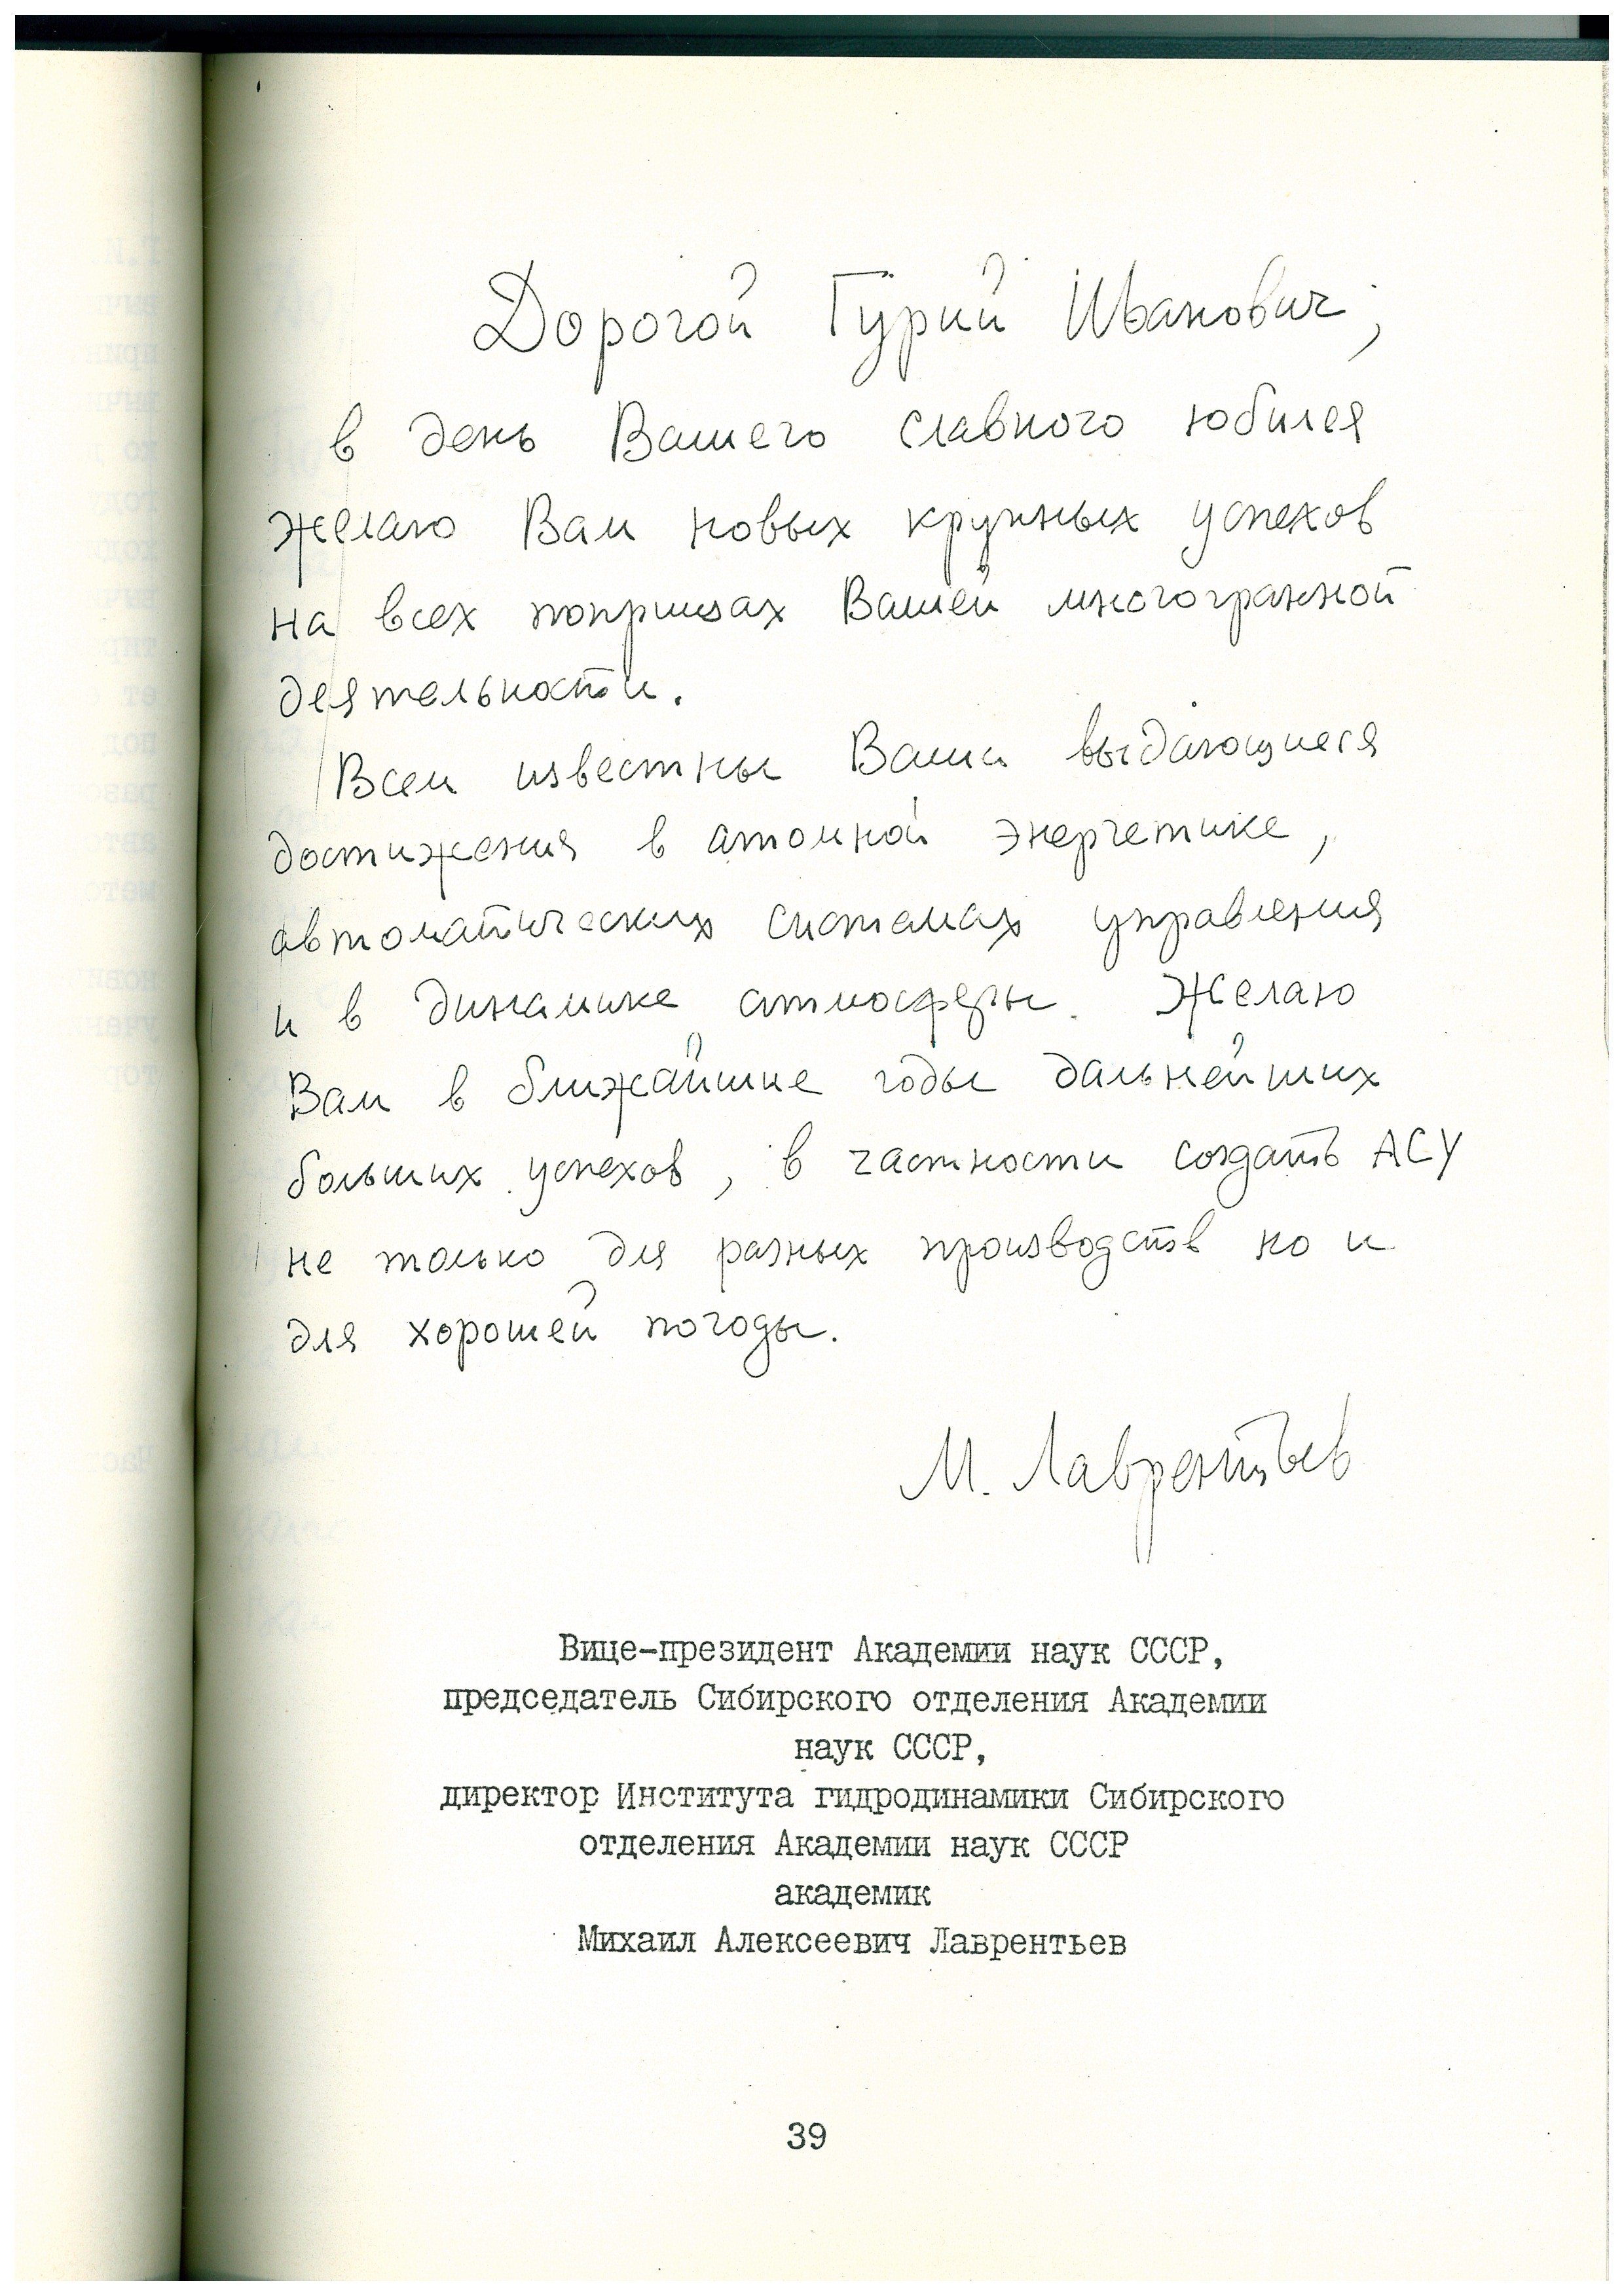 Дорогой Гурий Иванович,
в день Вашего славного юбилея
желаю Вам новых крупных успехов
на всех поприщах Вашей многогранной
деятельности.
Всем известны Ваши выдающиеся
достижения в атомной энергетике,
автоматических системах управления
и в динамике атмосферы. Желаю
Вам в ближайшие годы дальнейших
больших успехов, в частности создать АСУ
не только для разных производств но и
для хорошей погоды.
М. Лаврентьев
Вице-президент Академии наук СССР,
председатель Сибирского отделения Академии
наук СССР,
директор Института гидродинамики Сибирского
отделения Академии наук СССР
академик
Михаил Алексеевич Лаврентьев
39